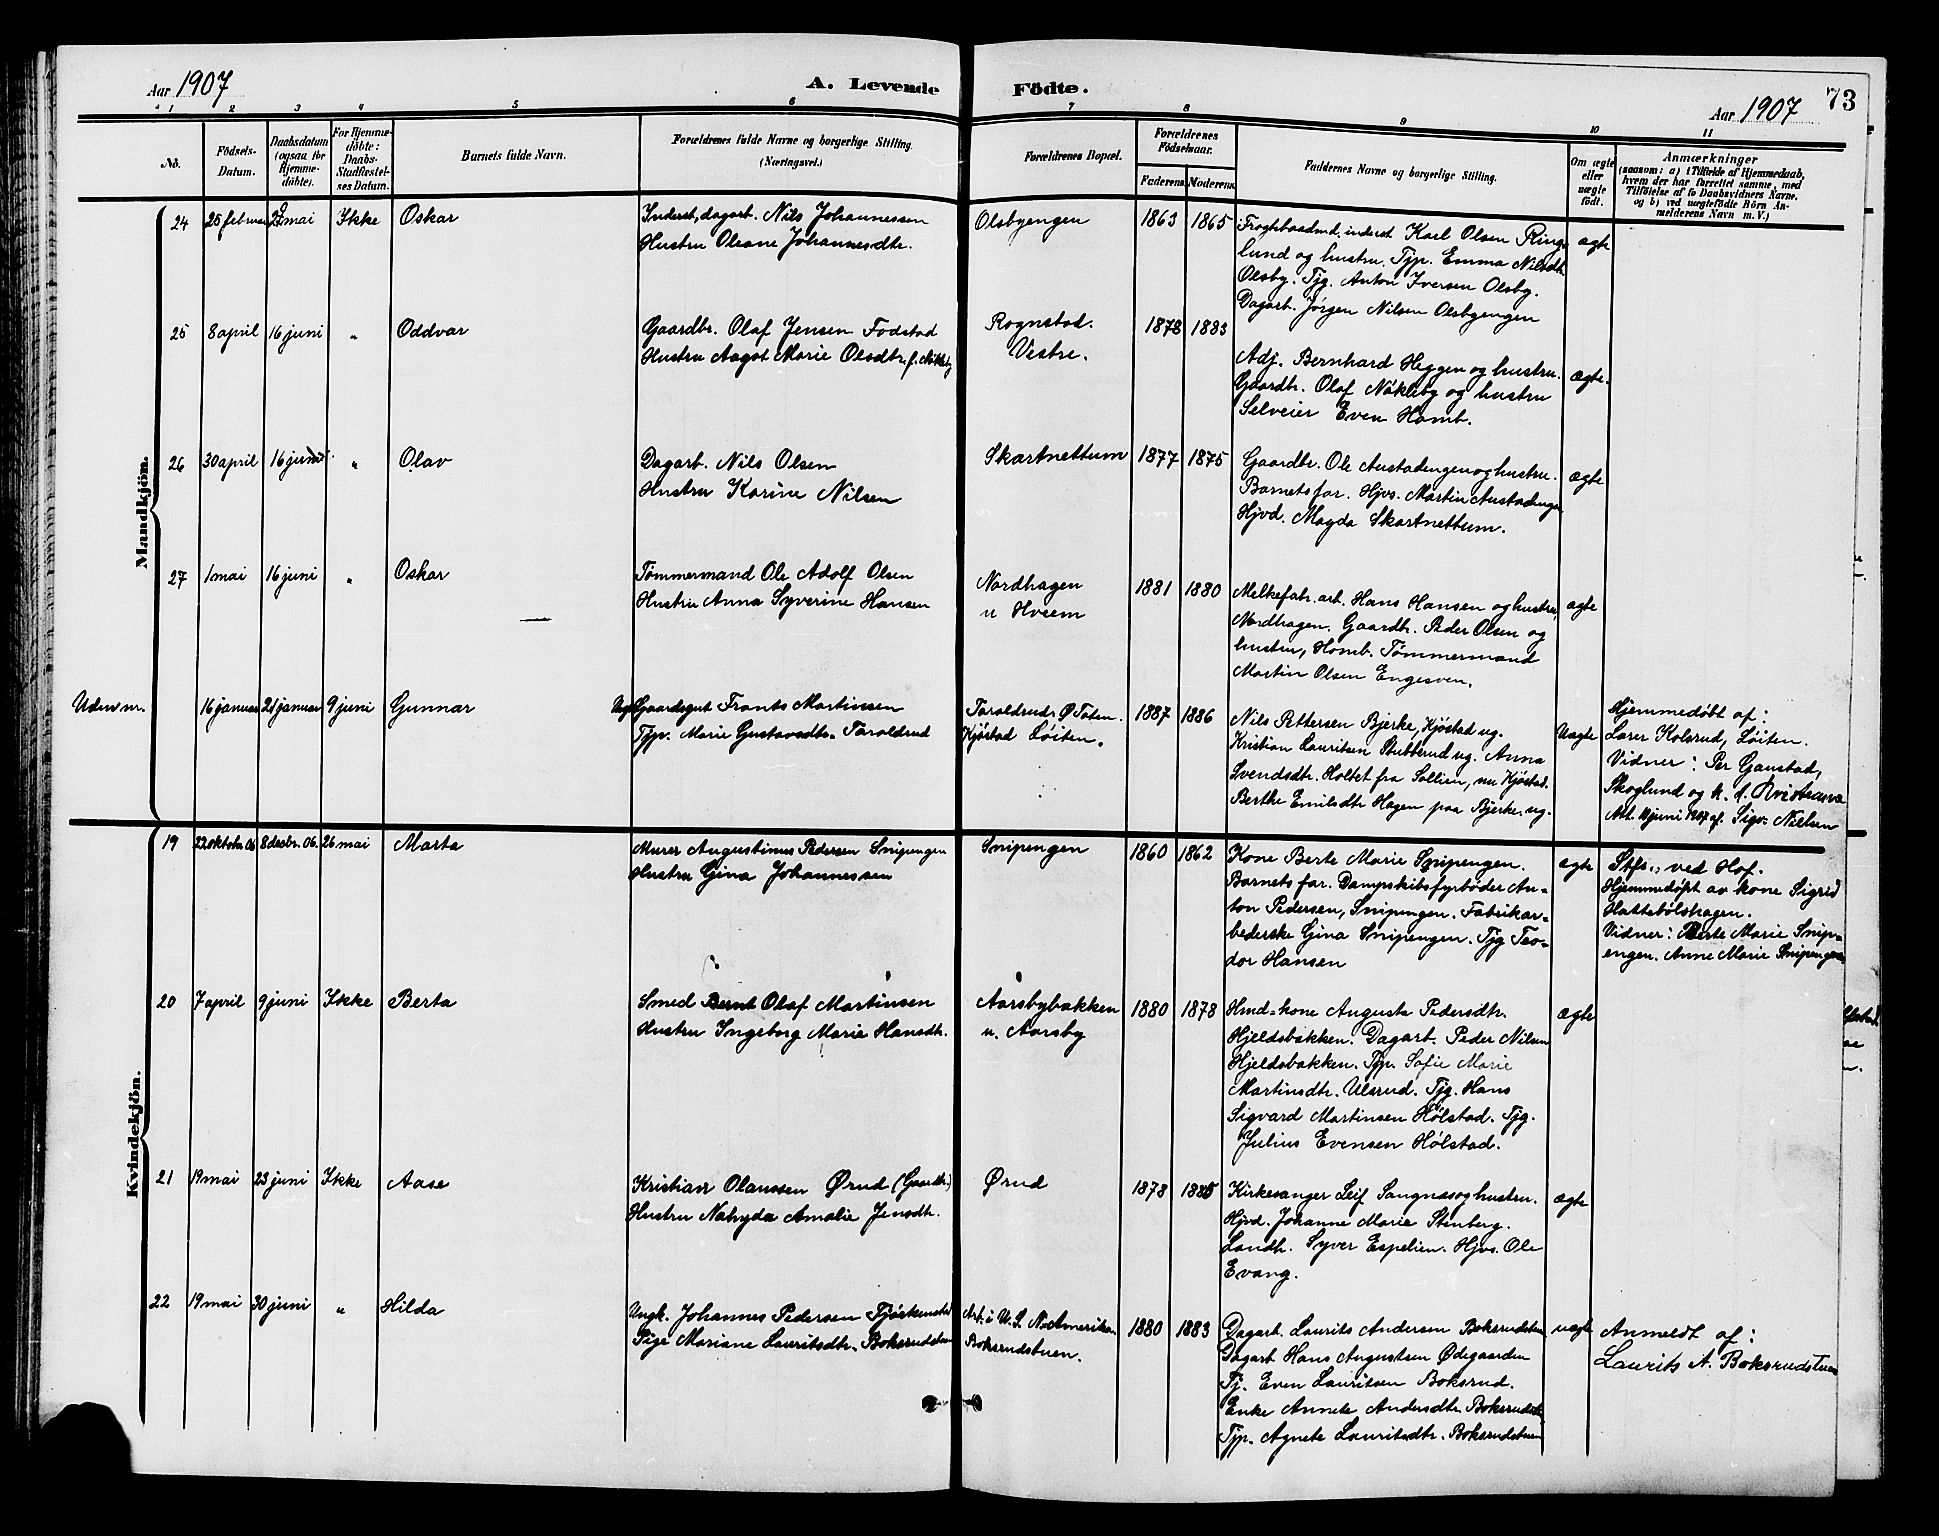 Aar 1907
A. Levende
Födte.
Aar 1907
73
1 2 3 4 5 6 7 8 9 10 11
No.
Födsels-
Datum.
Daabsdatum
(ogsaa for
Hjemme-
döbte).
For Hjemme-
döbte:
Daabs-
Stadfæstel-
ses Datum.
Barnets fulde Navn.
Forældrenes fulde Navne og borgerlige Stilling.
(Næringsvei.)
Forældrenes Bopæl.
Forældrenes
Födselsaar.
Faderens. Moderens.
Faddernes Navne og borgerlige Stilling.
Om ægte
eller
uægte
födt.
Anmærkninger
(saasom: a) i Tilfælde af Hjemmedaab,
hvem der har forrettet samme, med
Tilföielse af to Daabsvidners Navne.
og b) ved uægtefödte Börn An-
melderens Navn m. V.)
Mandkjön.
24 25 februar mai Ikke Oskar
Inderst, dagarb. Nils Johannessen
Hustru Oleane Johannesdtr.
Olsbyengen
1863 1865
Fragtebaadmd. inderst Karl Olsen Ring-
lund og hustru. Typ. Emma Nilsdtr.
Olsby. Tjg. Anton Iversen Olsby.
Dagarb. Jørgen Nilsen Olsbyengen
ægte
25 8 april 16 juni " Oddvar
Gaardbr. Olaf Jensen Fodstad
Hustru Aagot Marie Olsdtr. f. Nökleby
Rognstad.
Vestre.
1878 1883
Adj. Bernhard Heggen og hustru.
Gaardbr. Olaf Nökleby og hustru
Selveier Even Homb.
ægte.
26 30 april 16 juni " Olav
Dagarb. Nils Olsen
Hustru Karine Nilsen
Skartnettum
1877 1875
Gaardbr. Ole Austadengen og hustru.
Barnets far. Hjvs. Martin Austadengen
Hjvd. Magda Skartnettum.
ægte
27 1 mai 16 juni " Oskar
Tömmermand Ole Adolf Olsen
Hustru Anna Syverine Hansen
Nordhagen
u Hveem
1881 1880
Melkefabr. arb. Hans Hansen og hustru,
Nordhagen. Gaardbr. Peder Olsen og
hustru, Homb. Tömmermand
Martin Olsen Engesven.
ægte
Uden nr. 16 januar 21 januar 9 juni Gunnar
Gaardsgut Frants Martinsen
Typ. Marie Gustavsdtr. Taraldrud
Taraldrud Ø Toten.
Kjöstad Löiten.
1887 1886
Nils Pettersen Bjerke, Kjöstad ug.
Kristian Lauritsen Stubberud ug. Anna
Svendsdtr. Holtet fra Sollien, nu Kjöstad.
Berthe Emilsdtr Hagen paa Bjerke. ug.
Uægte
Hjemmedöbt af:
Lærer Kolsrud, Löiten.
Vidner: Per Ganstad,
Skoglund og k. f.
Att. 11 juni 1907 af. Sigv. Nielsen
Kvindekjön.
19 22 oktobr. 06 8 decbr. 06. 26 mai Marta
Murer Augustinus Pedersen Snipengen
Hustru Gina Johannessen
Snipengen
1860 1862
Kone Berte Marie Snipengen.
Barnets far. Dampskibsfyrböder An-
ton Pedersen, Snipengen. Fabrikar-
beiderske Gina Snipengen. Tjg Teo-
dor Hansen
ægte
Stfs. ved Hof.
Hjemmedöpt av kone Sigrid
Hattebölshagen.
Vidner: Berte Marie Snip-
engen. Anne Marie Snipengen
20 7 april 9 juni Ikke Berta
Smed Bernt Olaf Martinsen
Hustru Ingeborg Marie Hansdtr.
Aarsbybakken
u. Aarsby
1880 1878
Hmd-kone Auguste Pedersdtr.
Hjeldsbakken. Dagarb. Peder Nilsen
Hjeldsbakken. Typ. Sofie Marie
Martinsdtr. Ulsrud. Tjg. Hans
Sigvard Martinsen Hölstad. Tjg.
Julius Evensen Hölstad.
ægte
21 19 mai 23 juni Ikke Aase
Kristian Olaussen Ørud (Gaardbr.)
Hustru Nahyda Amalie Jensdtr.
Ørud
1878 1885
Kirkesanger Leif Sangnæs og hustru.
Hjvd. Johanne Marie Stenberg.
Landh. Syver Espelien. Hjvs. Ole
Evang.
ægte
22 19 mai 30 juni " Hilda
Ungk. Johannes Pedersen
Pige Mariane Lauritsdtr. Boksrudstuen
Arb. i U. S. N. Amerika.
Boksrudstuen.
1880 1883
Dagarb. Laurits Andersen Boksrudstuen
Dagarb Hans Augustsen Ødegaarden
Tj. Even Lauritsen Boksrud.
Enke Annete Andersdtr. Boksrudstu
Typ. Agnete Lauritsdtr. Boksrudstuen
uægte
Anmeldt af:
Laurits A. Boksrudstuen